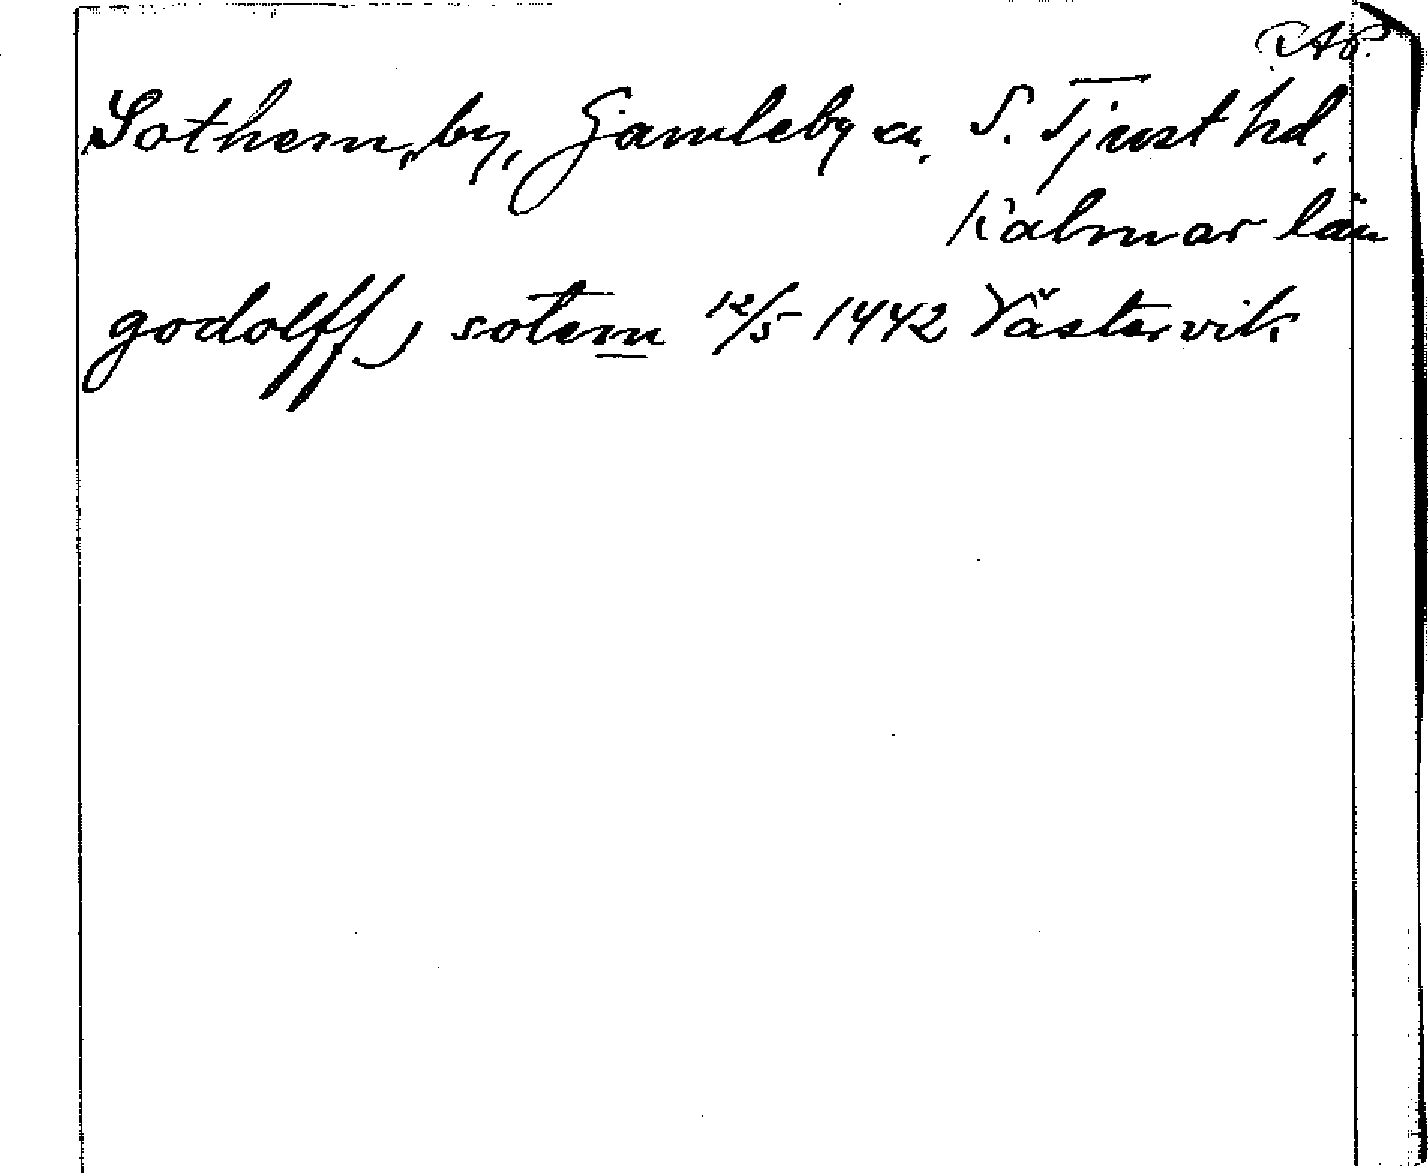 RAP.
Sothem, by, Gamleby sn. S. Tjust hd,
Kalmar län
godolff, sotem 12/5 1442 Västervik